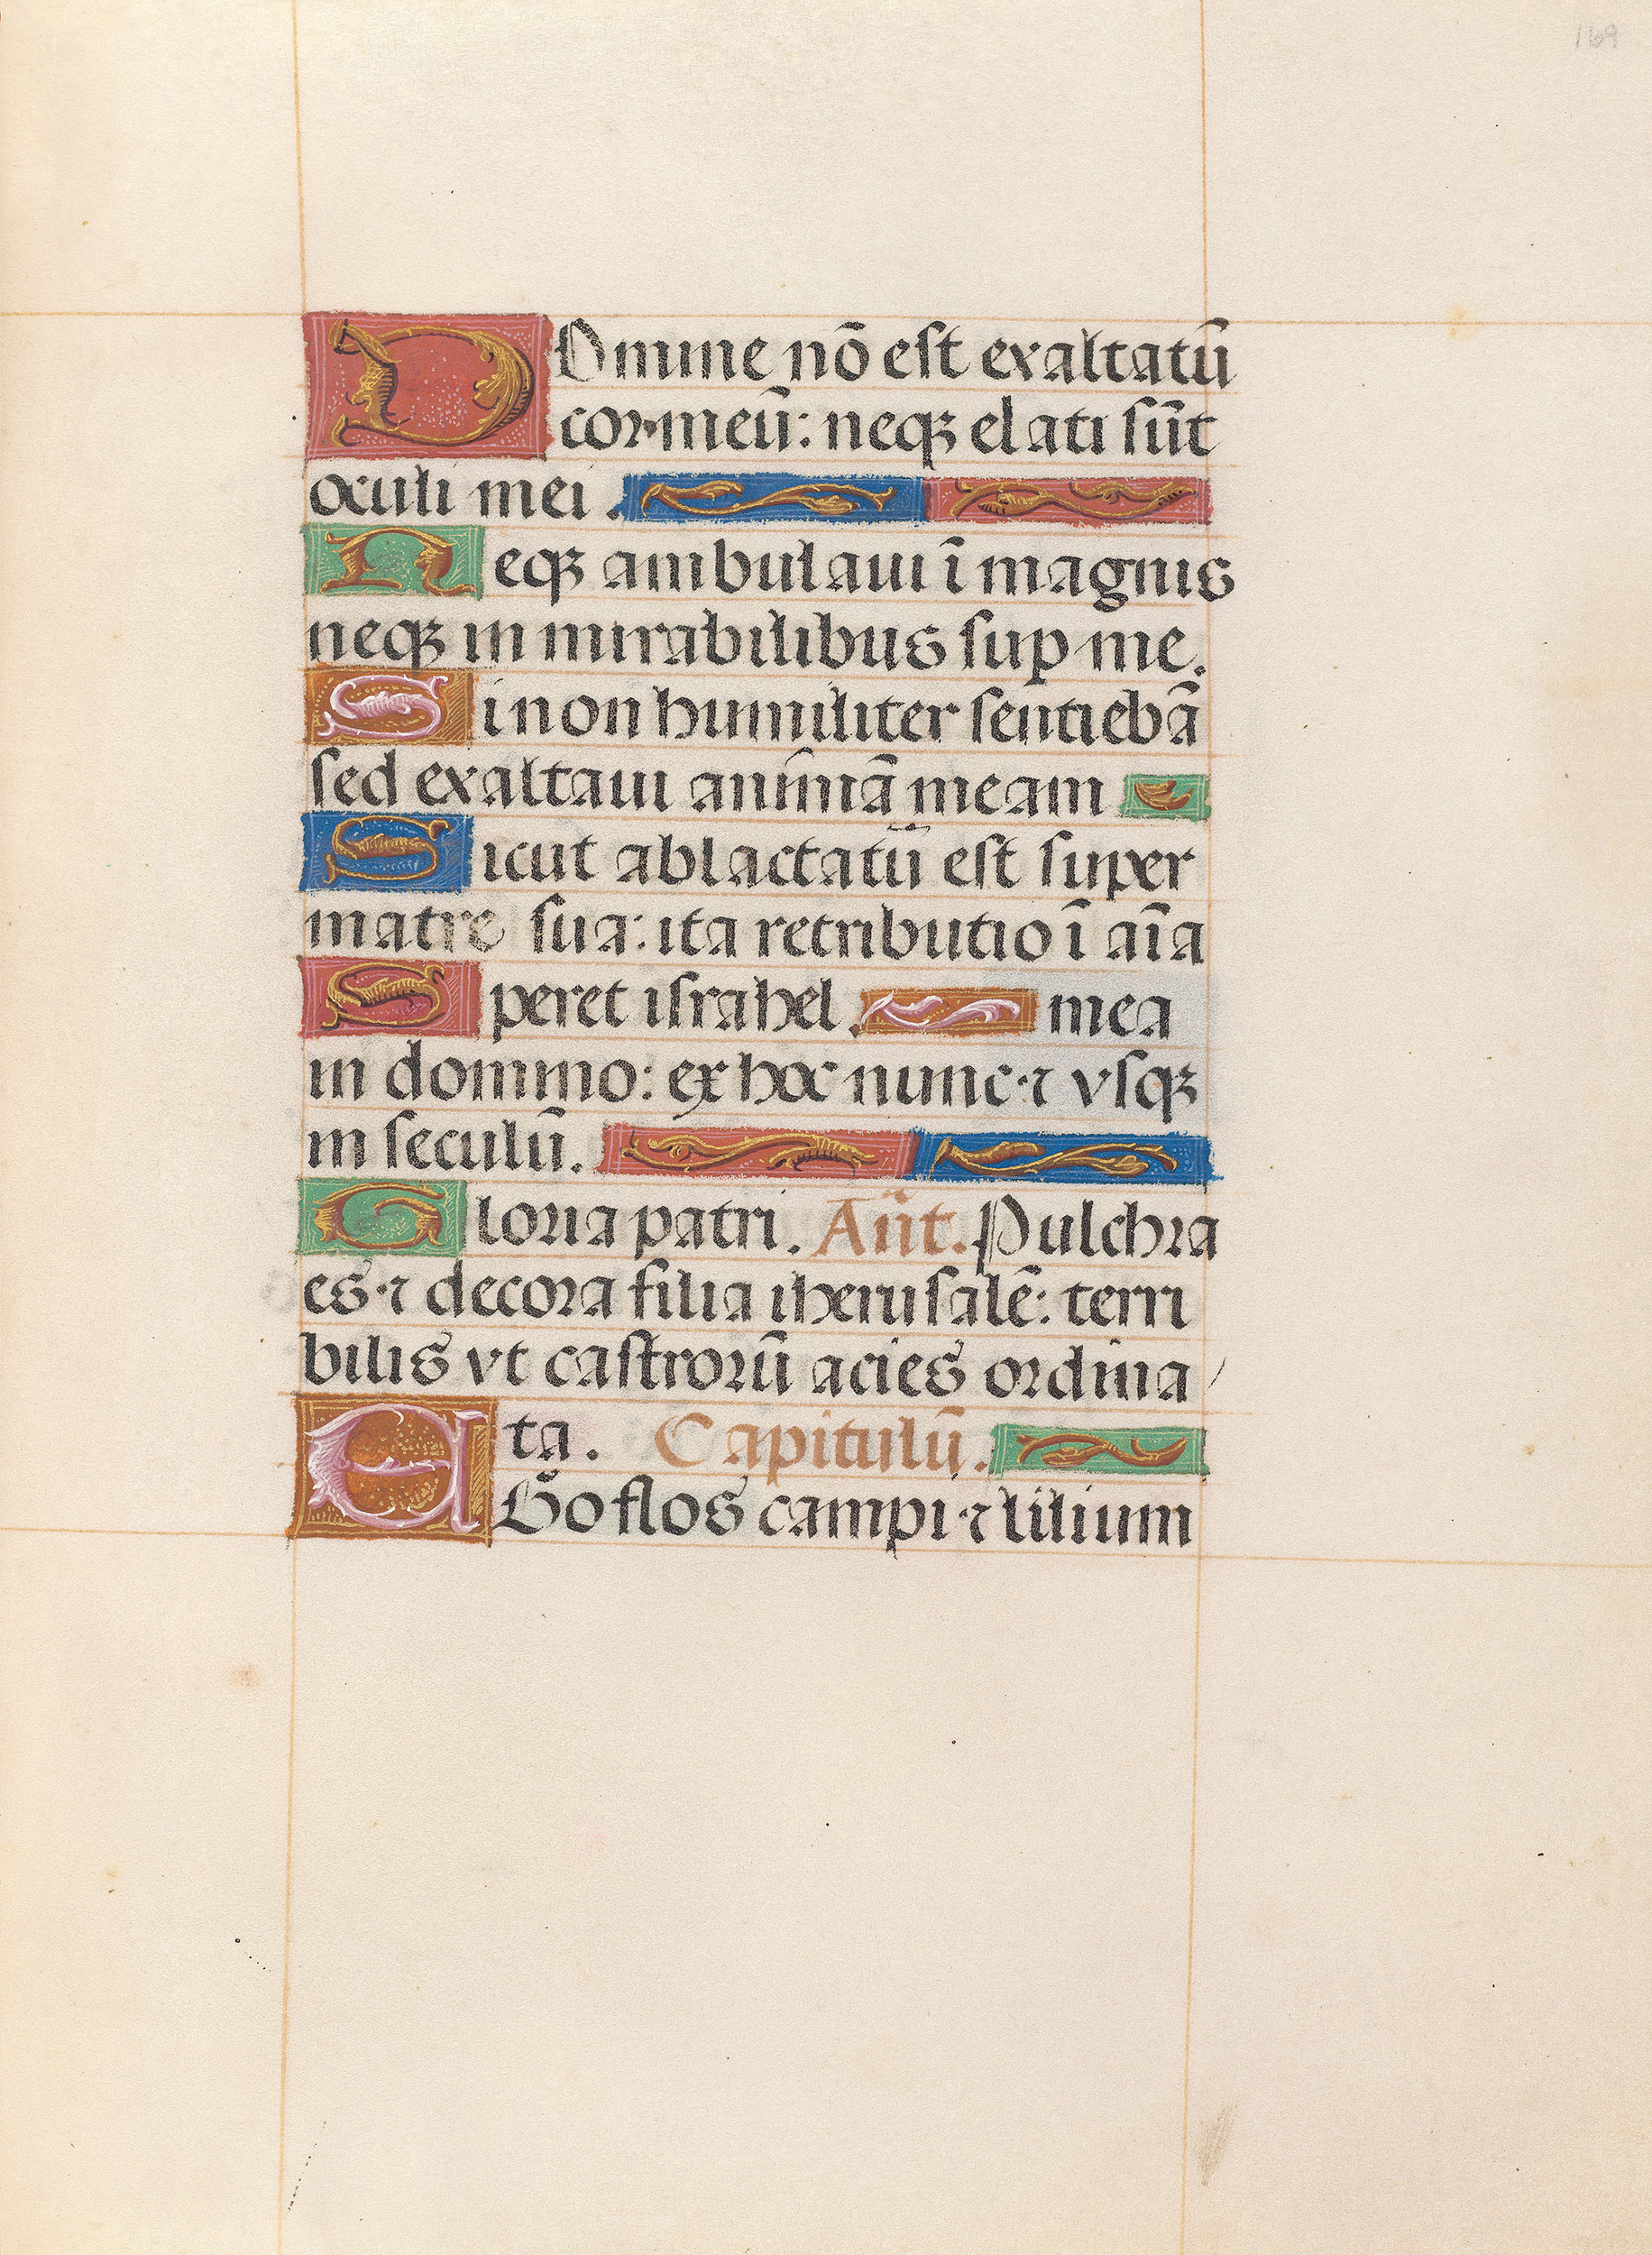 169
DOmine nō est exaltatū
cor meū: neqꝫ elati sūt
oculi mei.
Neqꝫ ambulaui ī magnis
neqꝫ in mirabilibus sup me.
Si non humiliter sentiebā
sed exaltaui animā meam
Sicut ablactatū est super
matre sua: ita retributio ī aīa
Speret israhel. mea
in domino: ex hoc nunc ⁊ vsqꝫ
in seculū.
Gloria patri. Añt. Pulchra
es ⁊ decora filia iherusalē: terri
bilis vt castrorū acies ordina/
ta. Capitulū.
EGo flos campi ⁊ lilium